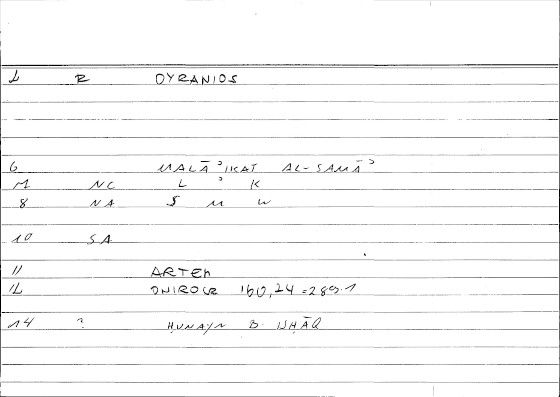 1 R OYRANIOS
6 MALĀʾIKAT AL-SAMĀʾ
M NC L ʾ K
8 NA S M W
10 SA
11 ARTEM
12 ONIROCR 160,24=289.1
14 ? ḤUNAYN B. ISḤĀQ